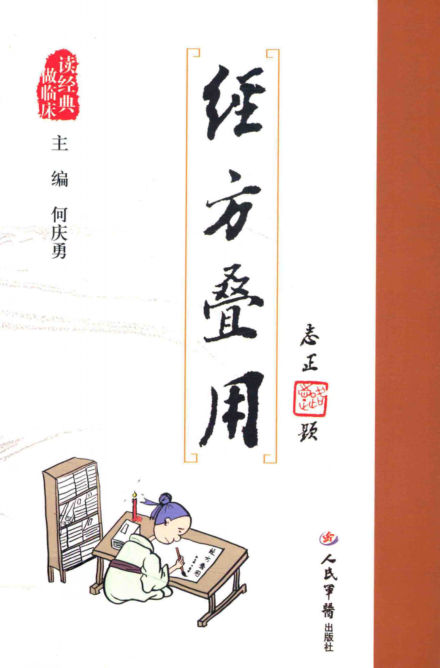 读经典
做临床
主编 何庆勇
经方叠用
志正
题
经方叠用
人民军医出版社